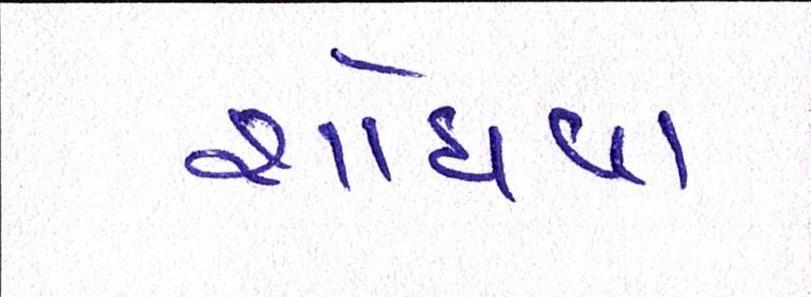 શોધવા